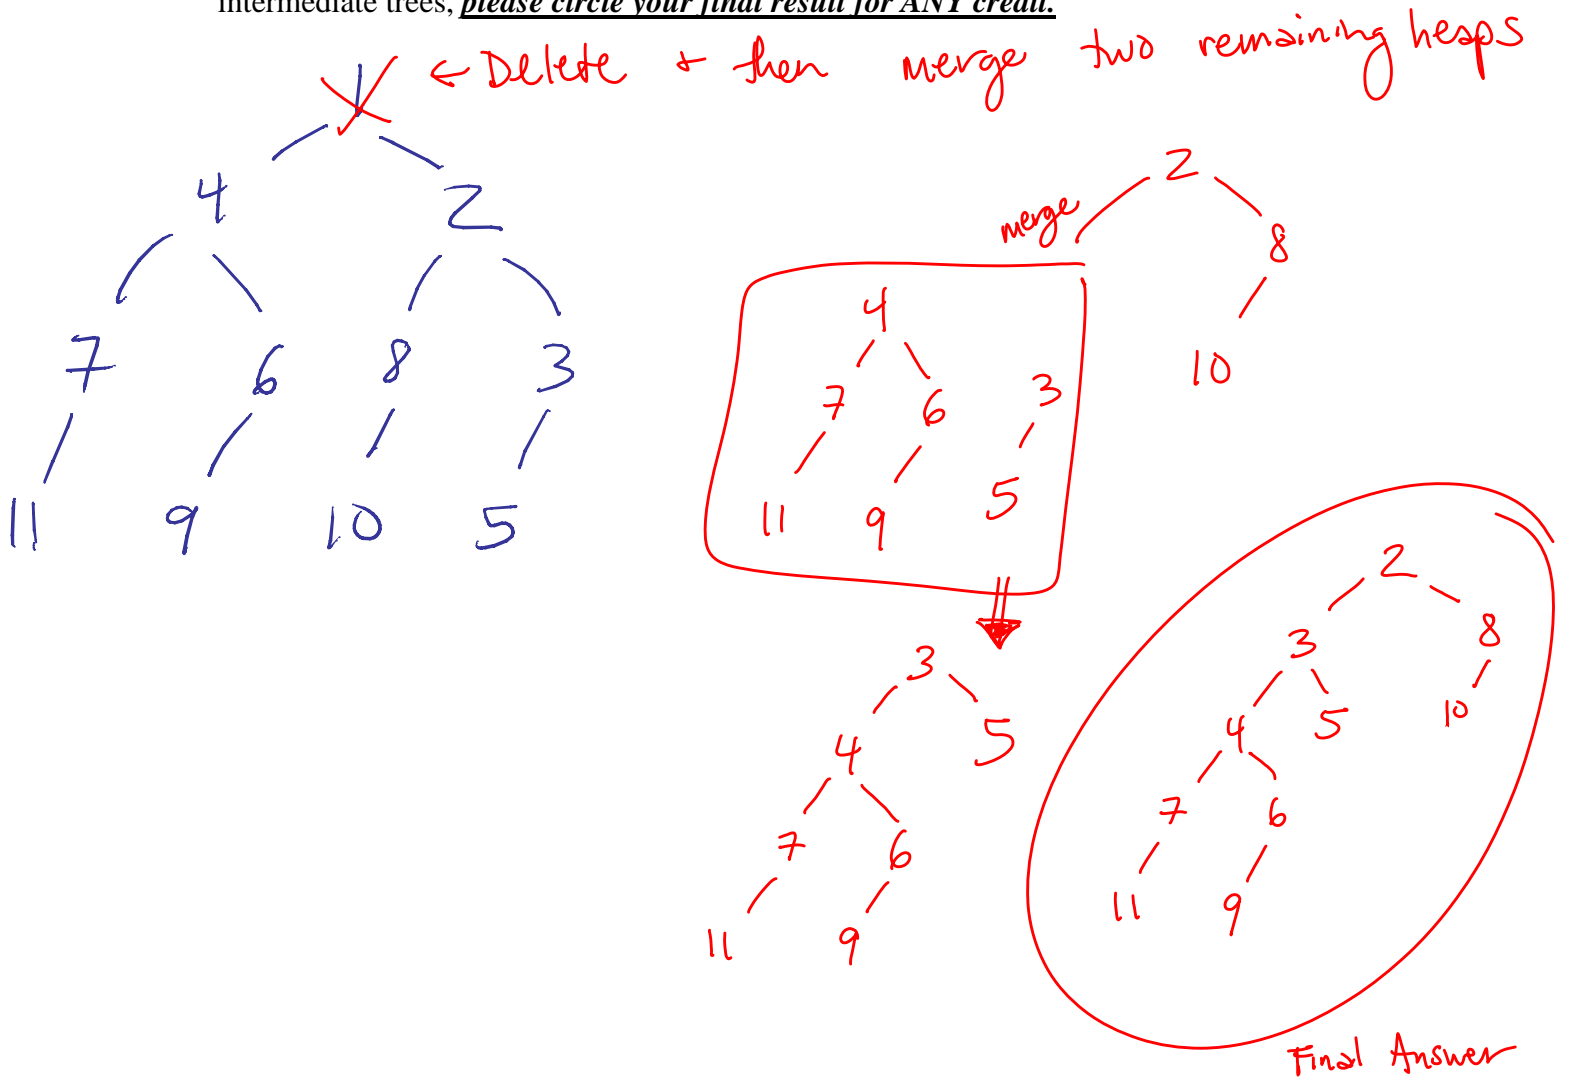 intermediate trees, please circle your final result for ANY credit.
← Delete + then merge two remaining heaps
1
4 2
7 6 8 3
11 9 10 5
2
merge
8
4
7 6 3
10
11 9 5
3
4 5
7 6
11 9
2
3 8
4 5 10
7 6
11 9
Final Answer